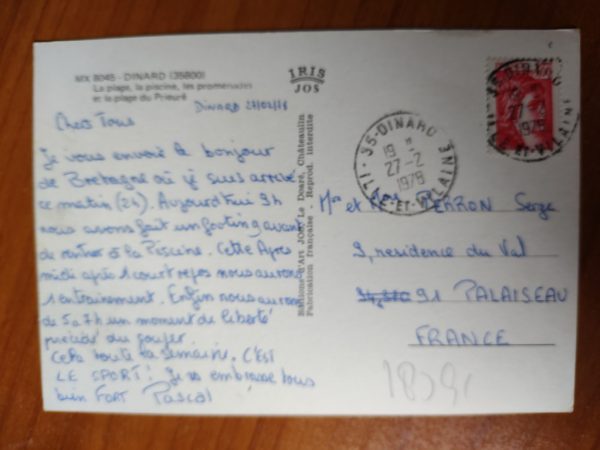 MX 8045 - DINARD (35800)
La plage, la piscine, les promenades
et la plage du Prieuré
IRIS
JOS
Dinard 27/02/79
Chers Tous
Je vous envoie le bonjour
de Bretagne où je suis arrivé
ce matin (2h). Aujourd'hui 9h
nous avons fait un footing avant
de rentrer à la Piscine. Cette Apres
midi après 1 court repos nous aurons
1 entrainement. Enfin nous aurons
de 5 à 7h un moment de liberté
précédé du gouter.
Cela toute la semaine. C'EST
LE SPORT! Je vs embrasse tous
bien FORT Pascal
Editions d'Art JOS Le Doaré, Châteaulin
Fabrication française - Reprod. interdite
35-DINARD
19 H
27-2
1979
ILLE-ET-VILAINE
35-DINARD
27-2
1979
ILLE-ET-VILAINE
Mr et Me PERRON Serge
9, residence du Val
91 PALAISEAU
FRANCE